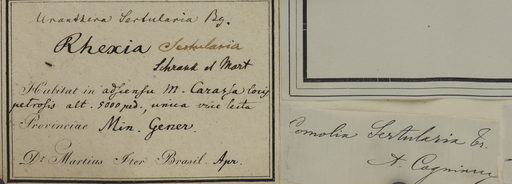 Uranthera Sertularia Bg.
Rhexia Sertularia
Schrank et Mart
Habitat in adscensu M. Caraza locis
petrosis alt. 5000 ped., unica vice lecta
Provinciae Min. Gener.
Dr Martius Iter Brasil. Apr.
Comolia Sertularia Tr.
A Cogniaux